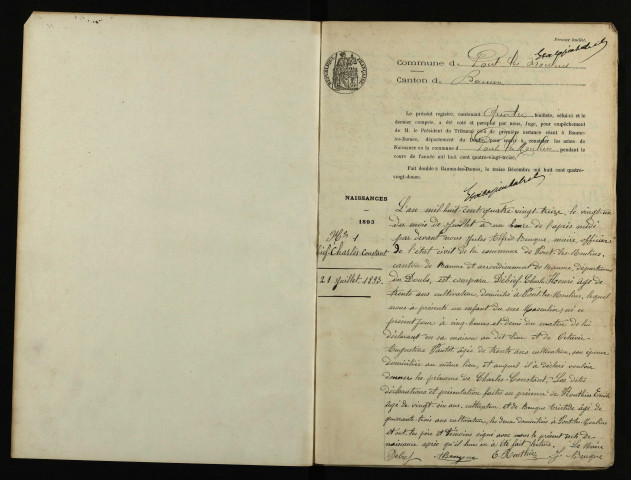 Premier feuillet.
Commune de Pont les Moulins
Canton de Baume
Le présent registre, contenant feuillets, celui-ci et le
dernier compris, a été coté et paraphé par nous, Juge, pour empêchement
de M. le Président du Tribunal civil de première instance séant à Baume-
les-Dames, département du Doubs, pour servir à constater les actes de
Naissance en la commune de Pont les Moulins pendant le
cours de l'année mil huit cent quatre-vingt-treize.
Fait double à Baume-les-Dames, le treize Décembre mil huit cent quatre-
vingt-douze.
NAISSANCES
1893
No 1
Charles Constant
21 Juillet 1893.
L'an mil huit cent quatre vingt treize, le vingt un
du mois de Juillet à une heure de l'après midi
par devant nous Jules Alfred Beuque, maire officier
de l'état civil de la commune de Pont-les-Moulins,
canton de Baume et arrondissement de Baume, département
du Doubs, est comparu Debief Charles âgé de
trente ans cultivateur, domicilié à Pont-les-Moulins, lequel
nous a présenté un enfant du sexe Masculin, né ce
présent jour à cinq heures et demi du matin de lui
déclarant en sa maison au dit lieu et de Octavie
Augustine âgée de trente ans cultivatrice, son épouse
domiciliée au même lieu, et auquel il a déclaré vouloir
donner les prénoms de Charles Constant. Les dites
déclarations et présentation faites en présence de Routhier Emile
âgé de vingt six ans, cultivateur, et de Beuque âgé de
quarante trois ans cultivateur, les deux domiciliés à Pont-les-Moulins
et ont les père et témoins signé avec nous le présent acte de
naissance après qu'il leur en a été fait lecture. Le Maire
Debief Beuque E. Routhier J. Beuque